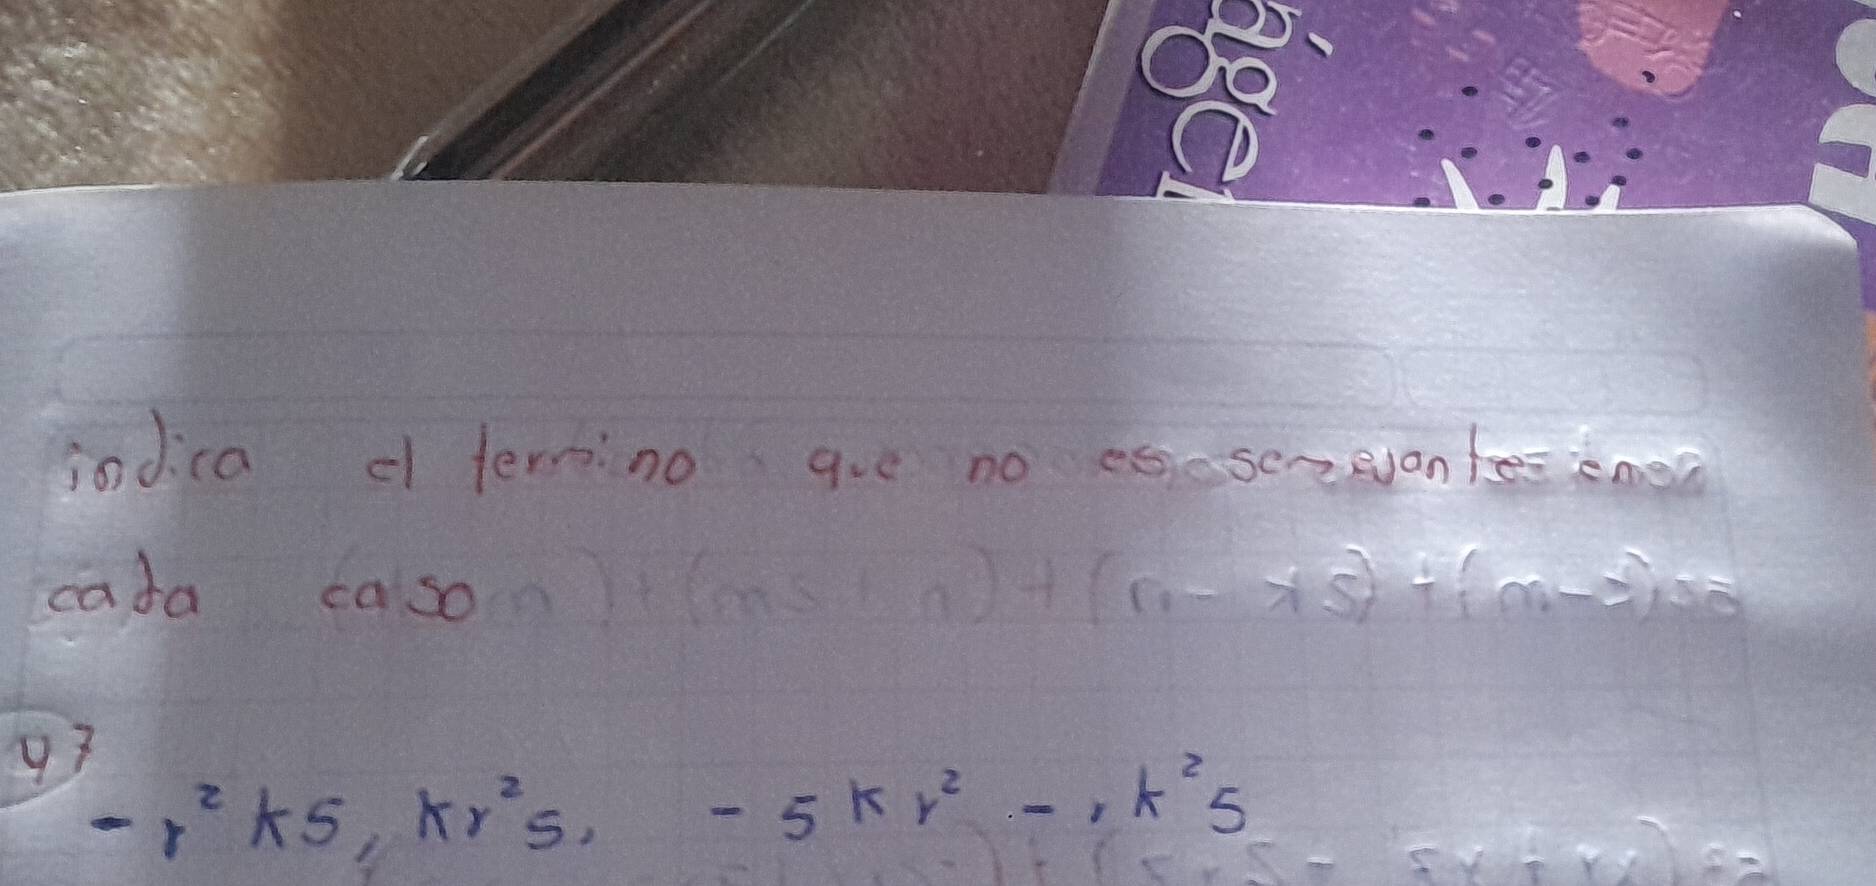 ágei
indica el termino que no es semejante en
cada caso
47
-r²ks, kr²s, -skr² -rk²s